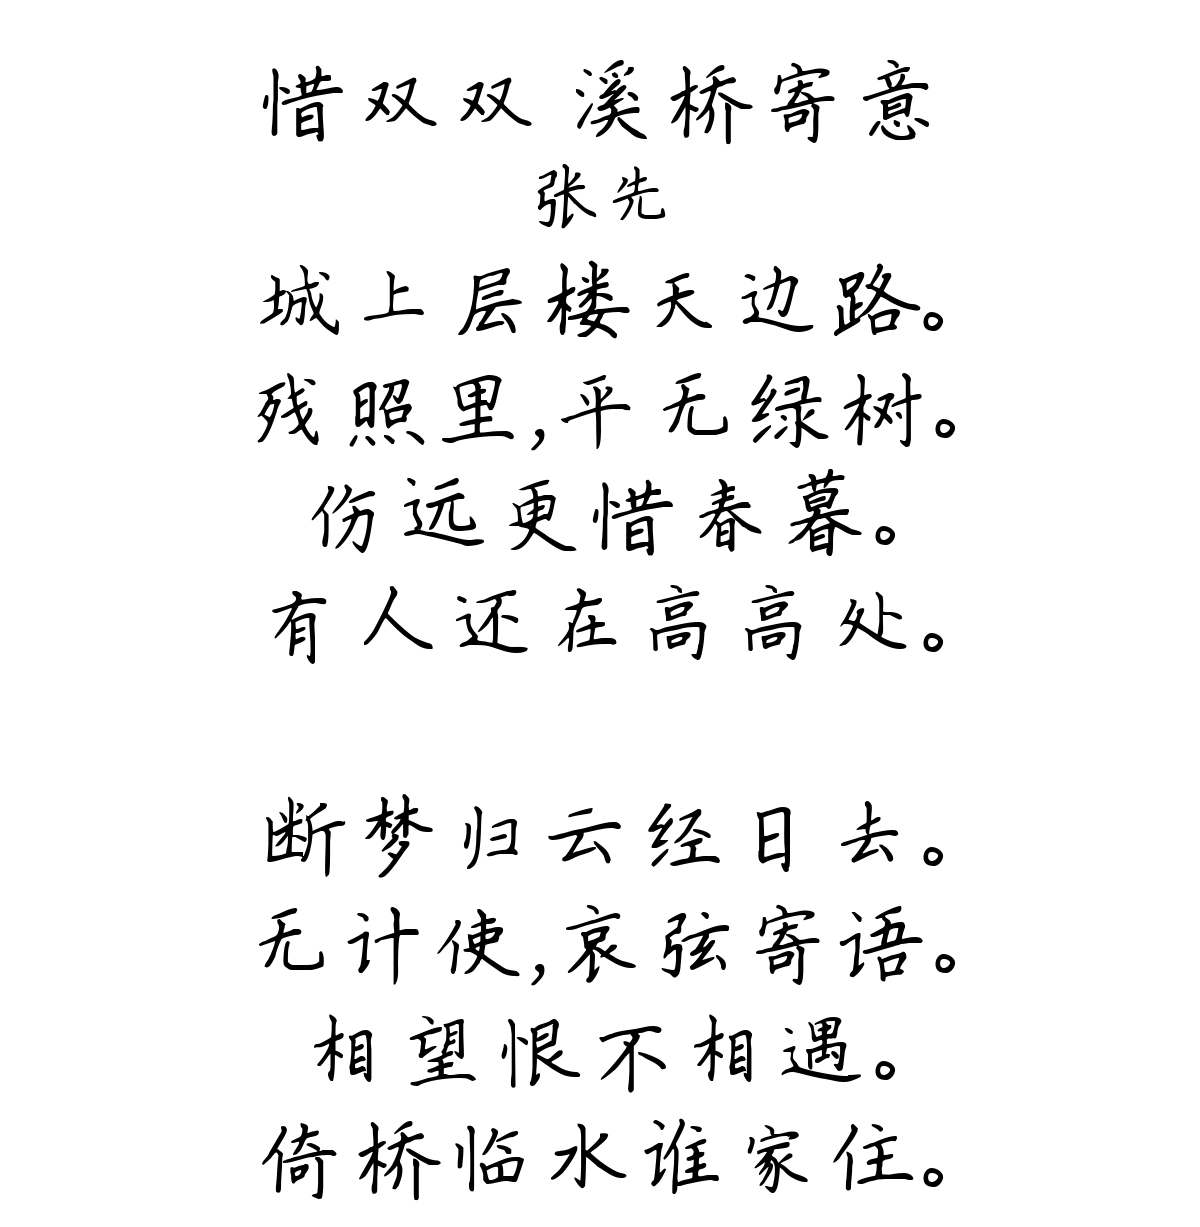 惜双双 溪桥寄意
张先
城上层楼天边路。
残照里,平无绿树。
伤远更惜春暮。
有人还在高高处。
断梦归云经日去。
无计使,哀弦寄语。
相望恨不相遇。
倚桥临水谁家住。